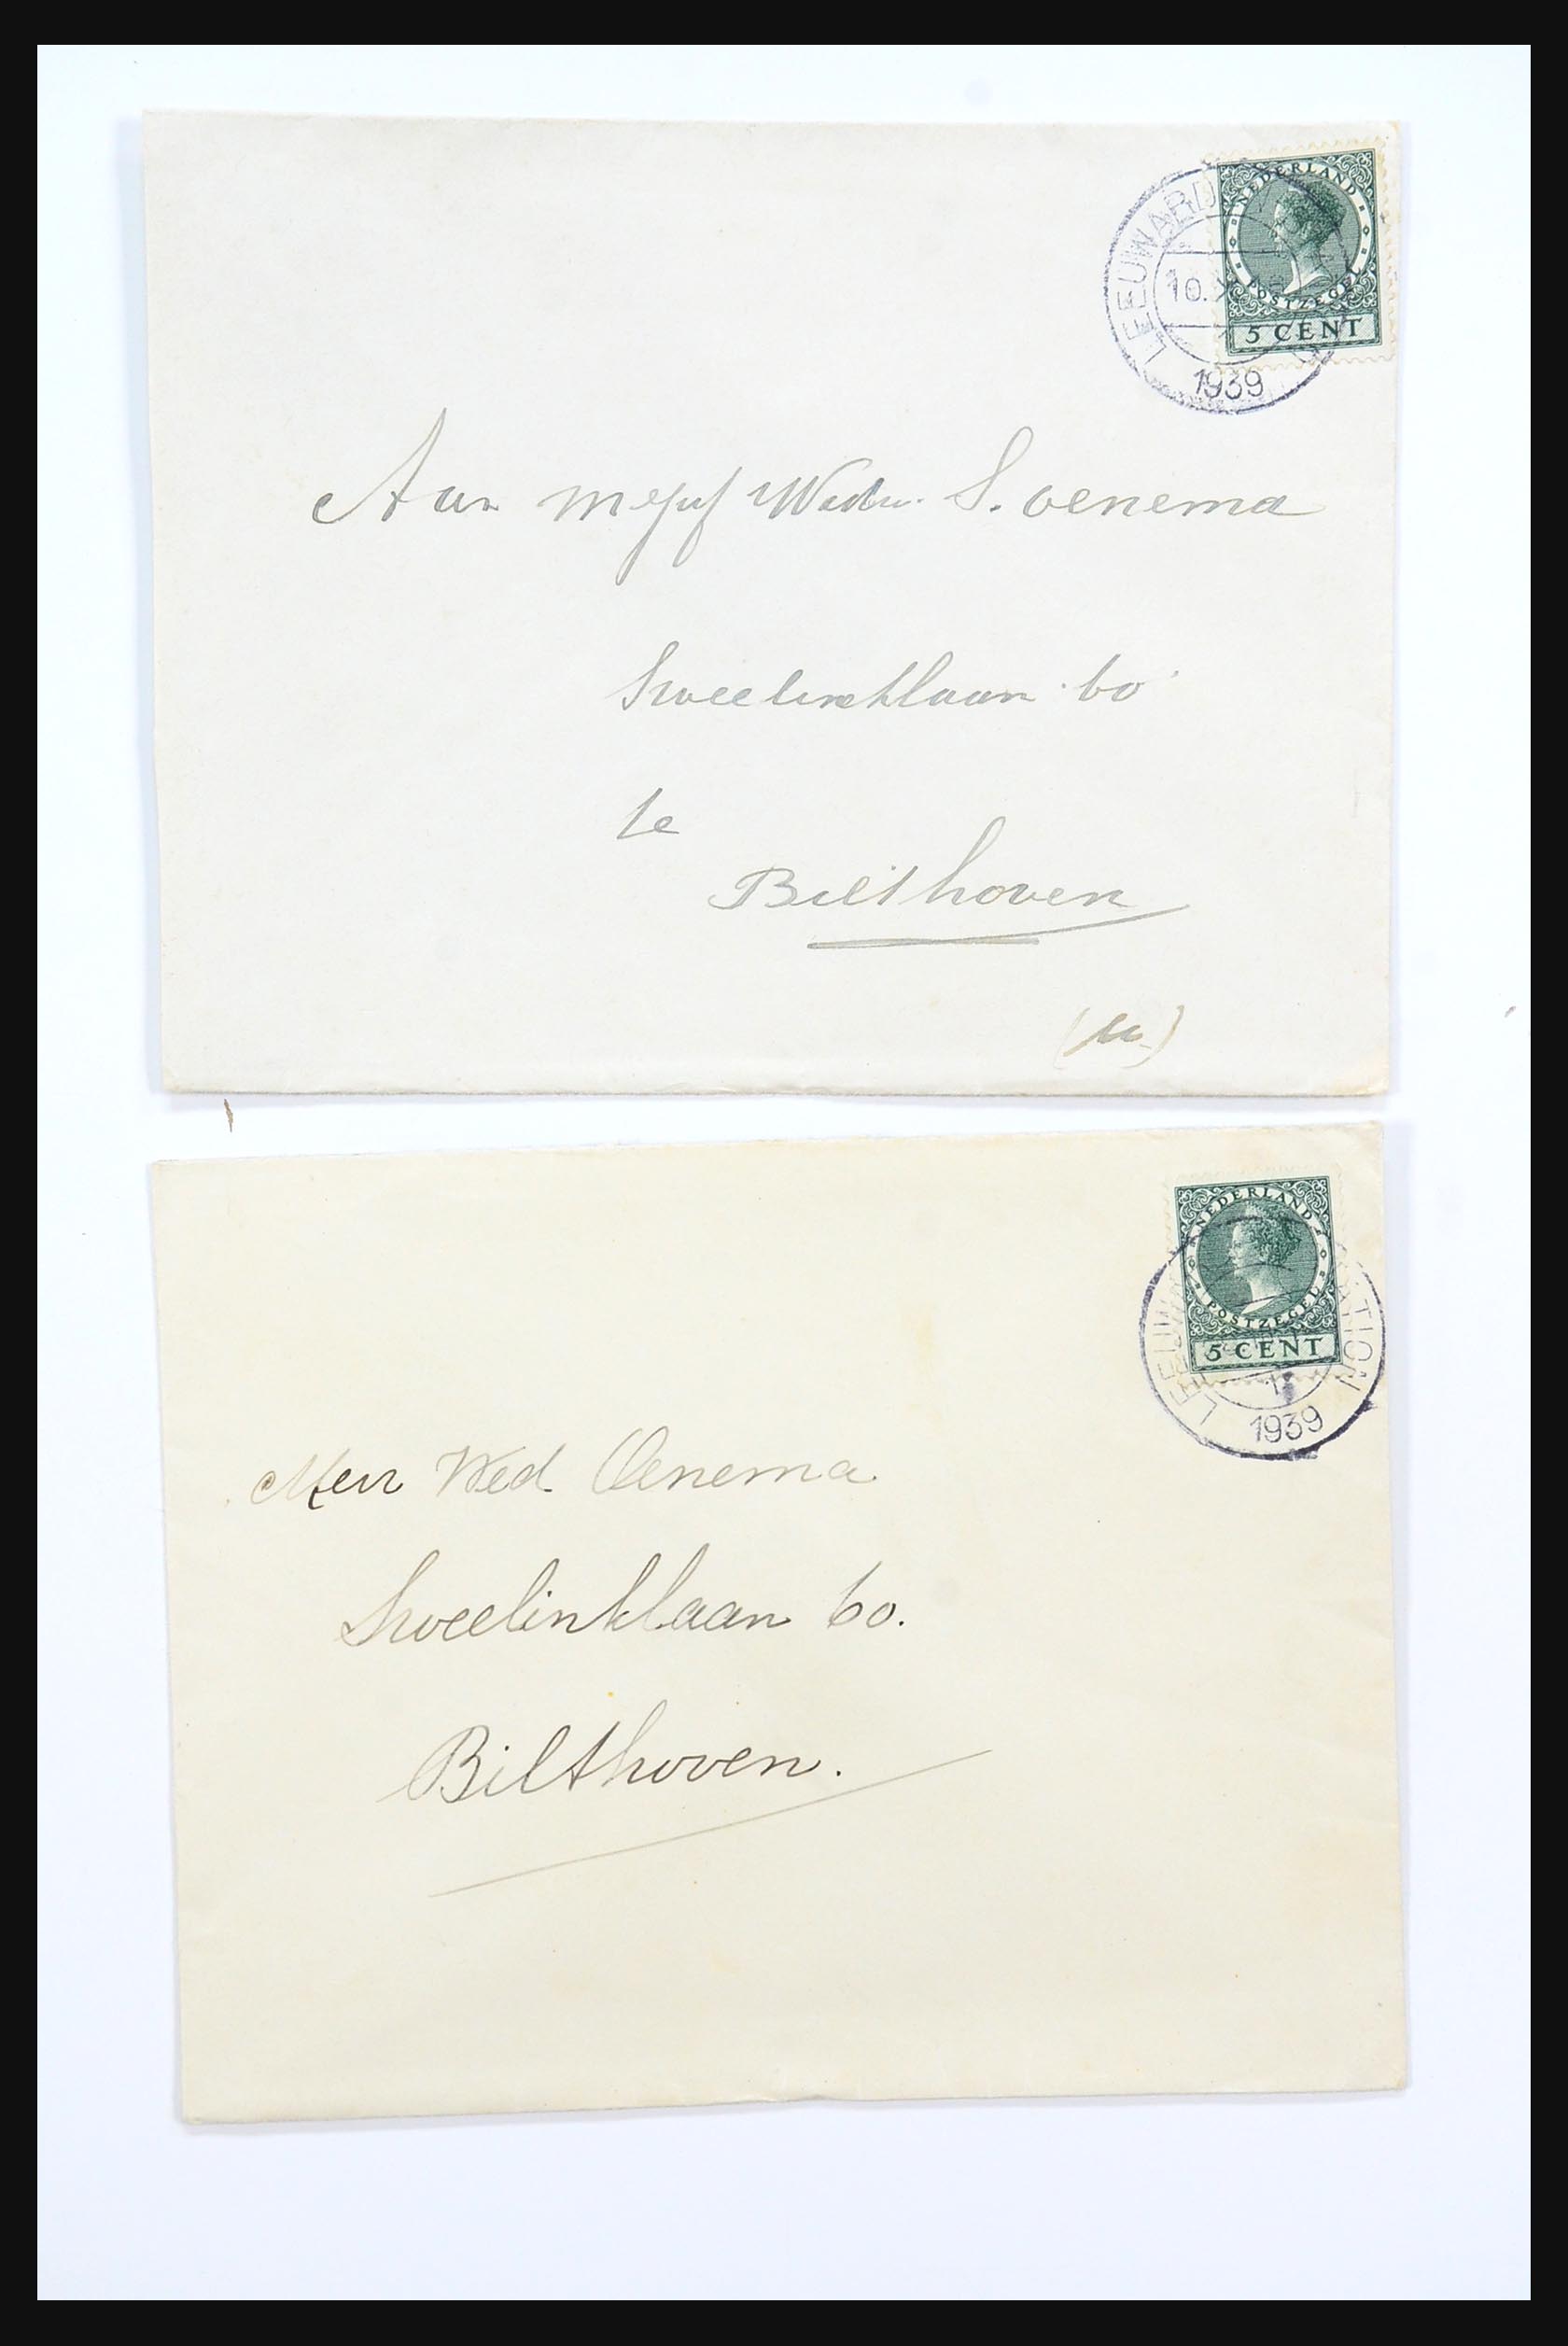 NEDERLAND
POSTZEGEL
5 CENT
LEEUWARD
10.X
1939
Aan Mejuf Wed. S. Oenema
Sweelinklaan 60
te
Bilthoven
NEDERLAND
POSTZEGEL
5 CENT
LEEUW STATION
1939
Mevr Wed. Oenema
Sweelinklaan 60.
Bilthoven.